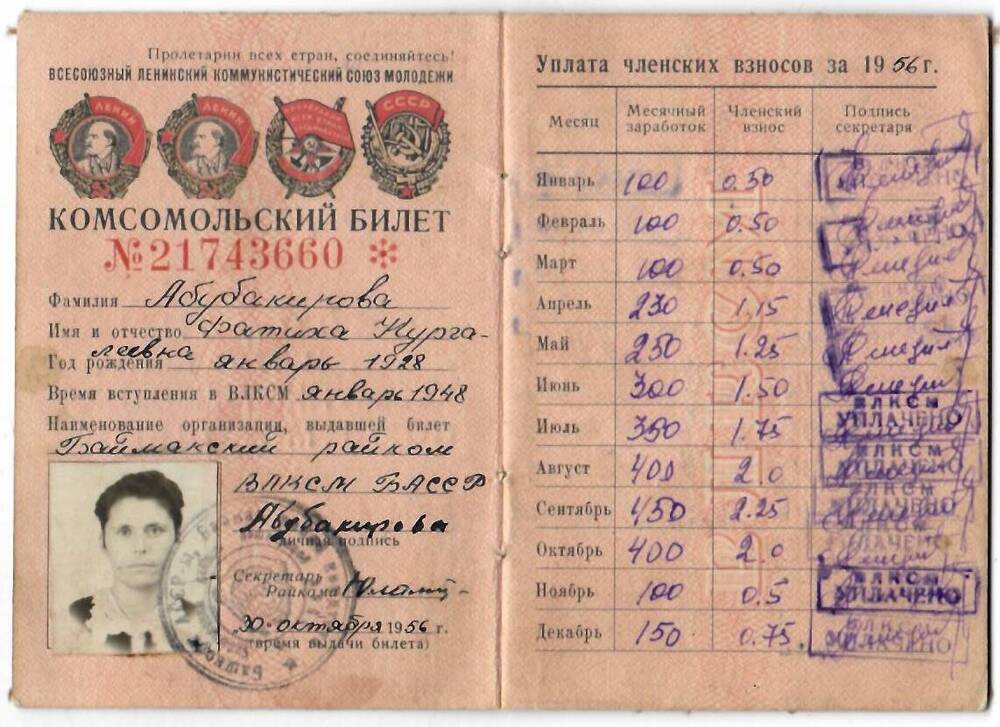 Пролетарии всех стран, соединяйтесь!
ВСЕСОЮЗНЫЙ ЛЕНИНСКИЙ КОММУНИСТИЧЕСКИЙ СОЮЗ МОЛОДЕЖИ
ЛЕНИН ЛЕНИН СССР
КОМСОМОЛЬСКИЙ БИЛЕТ
№21743660 *
Фамилия Абубакирова
Имя и отчество Фатиха Нурга-
леевна
Год рождения январь 1928
Время вступления в ВЛКСМ январь 1948
Наименование организации, выдавшей билет
Баймакский райком
ВЛКСМ БАССР
Абубакирова
личная подпись
Секретарь
Райкома
30 октября 1956 г.
(время выдачи билета)
Уплата членских взносов за 1956 г.
Месяц Месячный заработок Членский взнос Подпись секретаря
Январь 100 0.50
Февраль 100 0.50
Март 100 0.50
Апрель 230 1.15
Май 250 1.25
Июнь 300 1.50
ВЛКСМ
Июль 350 1.75 УПЛАЧЕНО
ВЛКСМ
Август 400 2.0
Сентябрь 450 2.25
Октябрь 400 2.0
ВЛКСМ
Ноябрь 100 0.5 УПЛАЧЕНО
ВЛКСМ
Декабрь 150 0.75 УПЛАЧЕНО